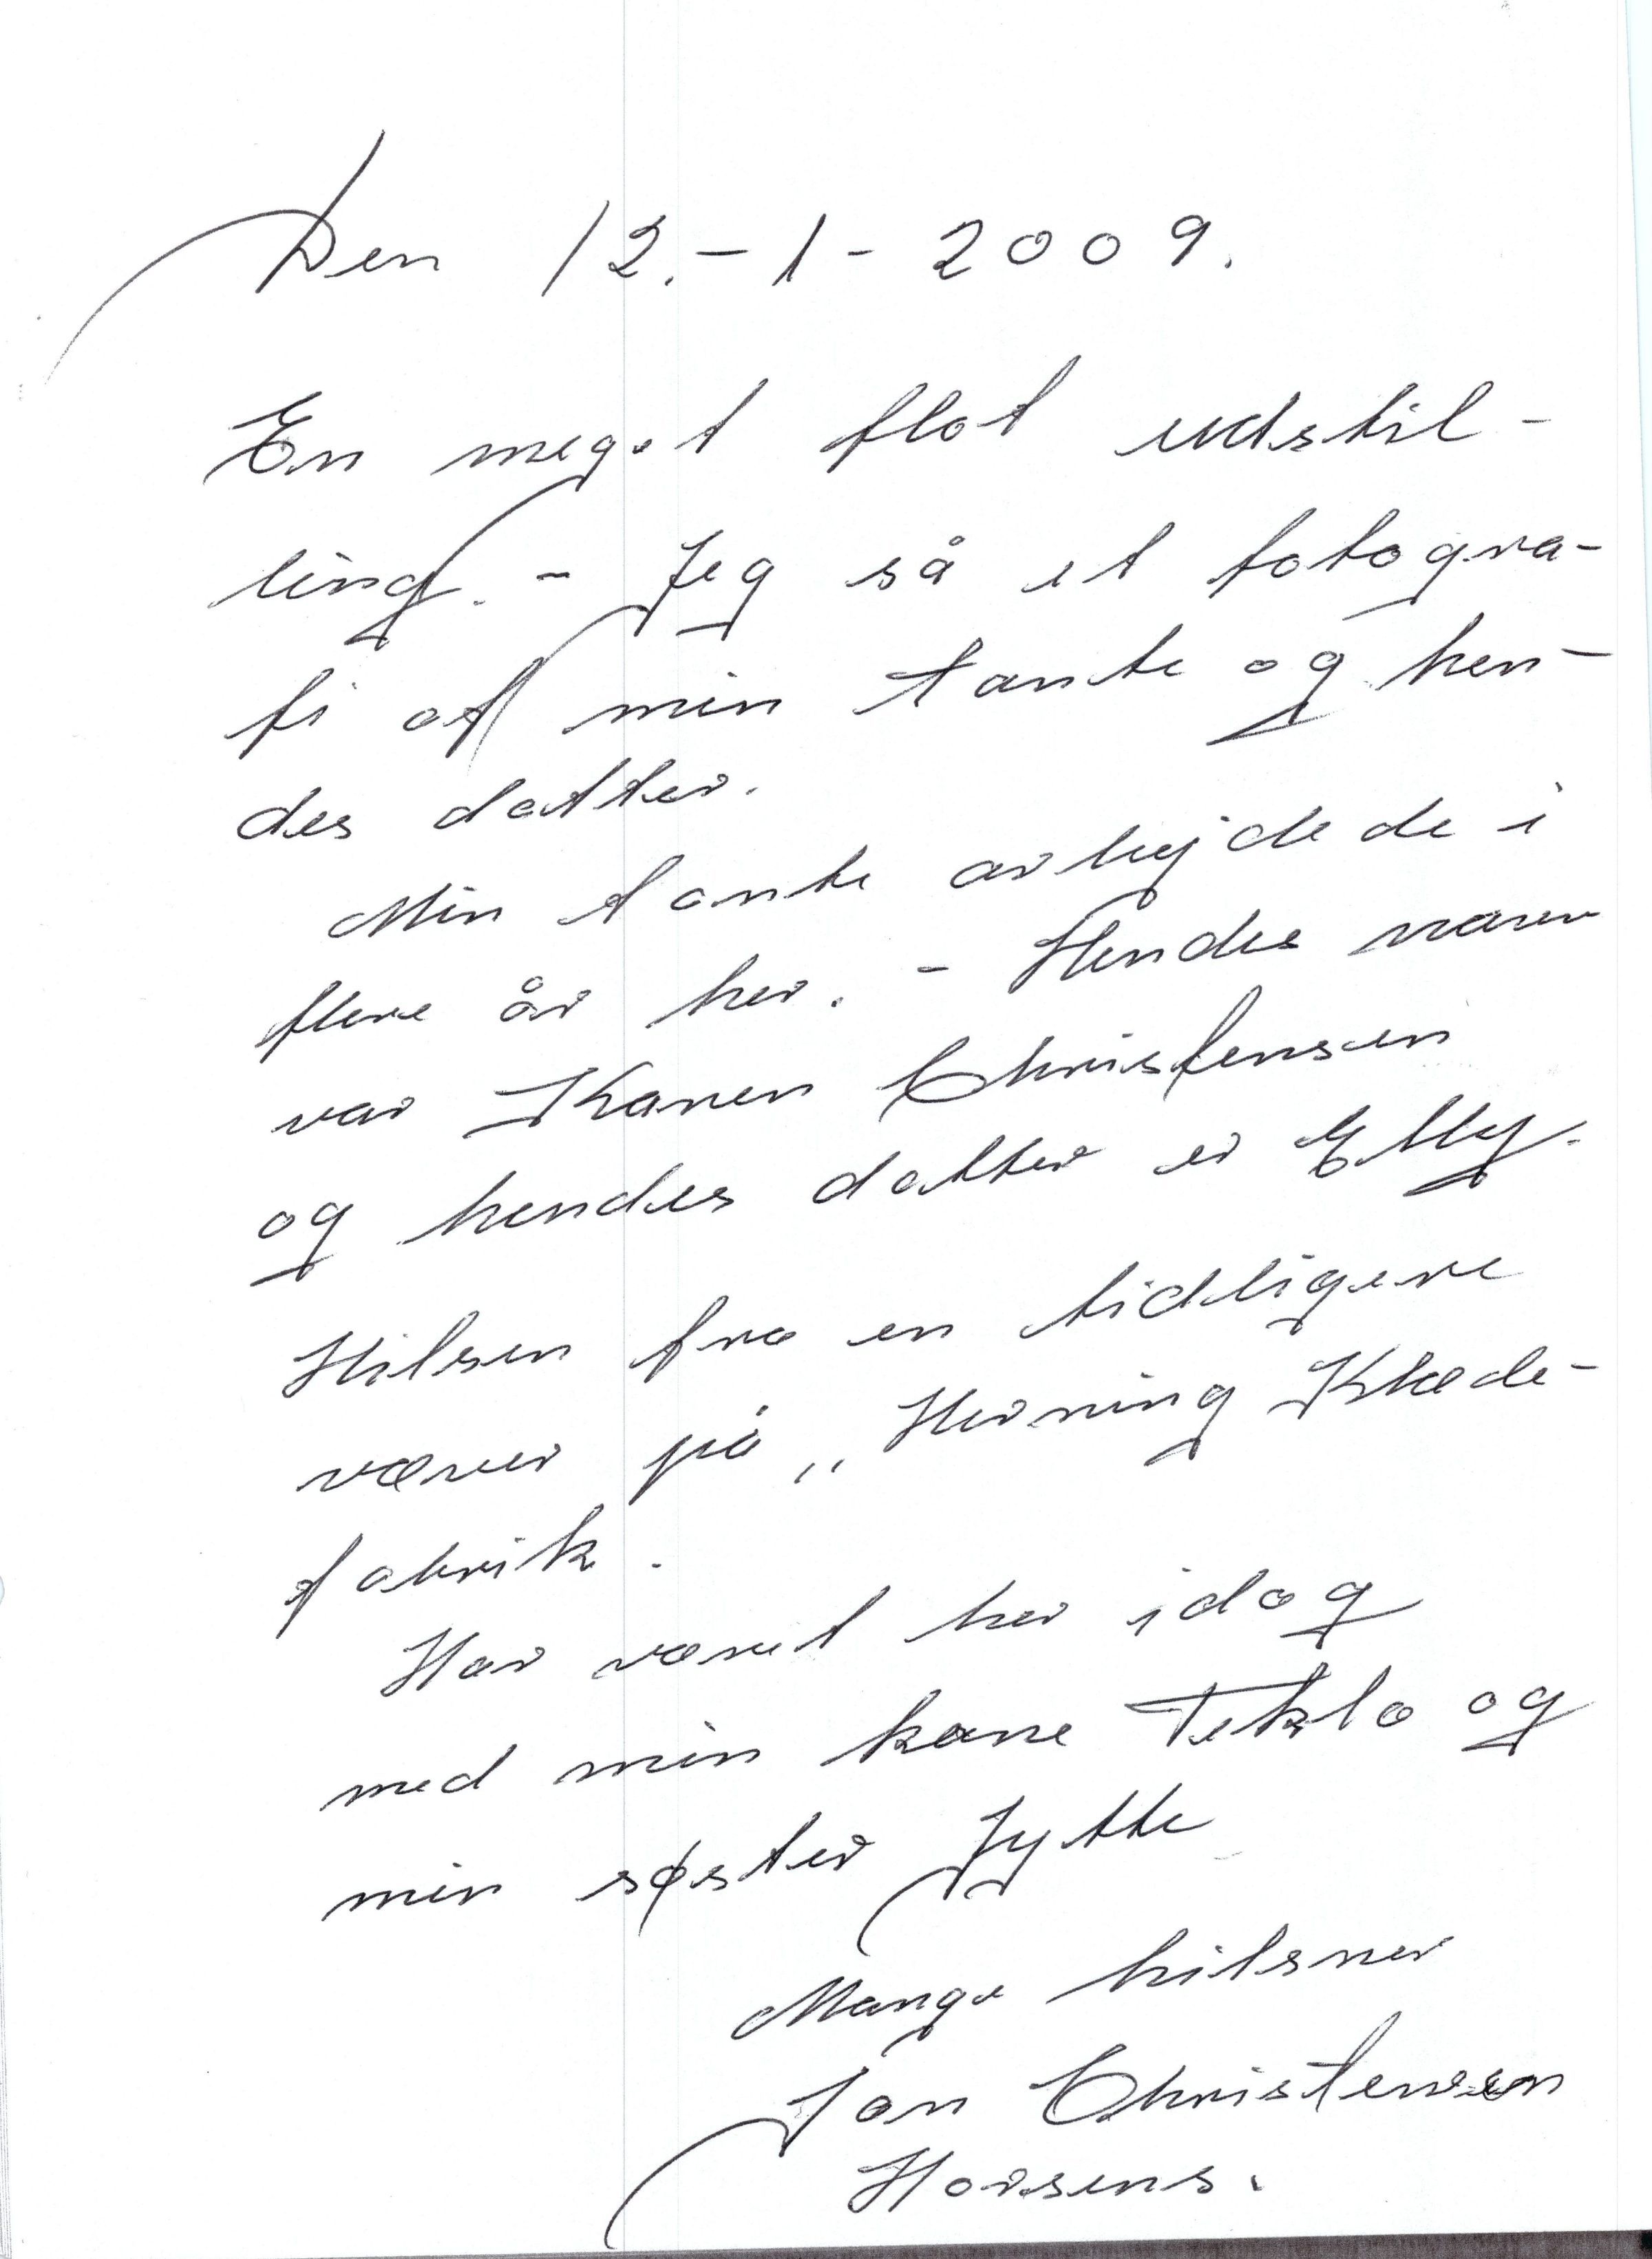 Den 12.-1-2009.
En meget flot udstil-
ling. - Jeg så et fotogra-
fi af min tante og hen-
des datter.
Min tante arbejdede i
flere år her. - Hendes navn
var Karen Christensen
og hendes datter er Elly.
Hilsen fra en tidligere
væver på „Herning Klæde-
fabrik.
Har været her idag
med min kone Tekla og
min søster Jytte
Mange hilsner
Jan Christensen
Horsens.